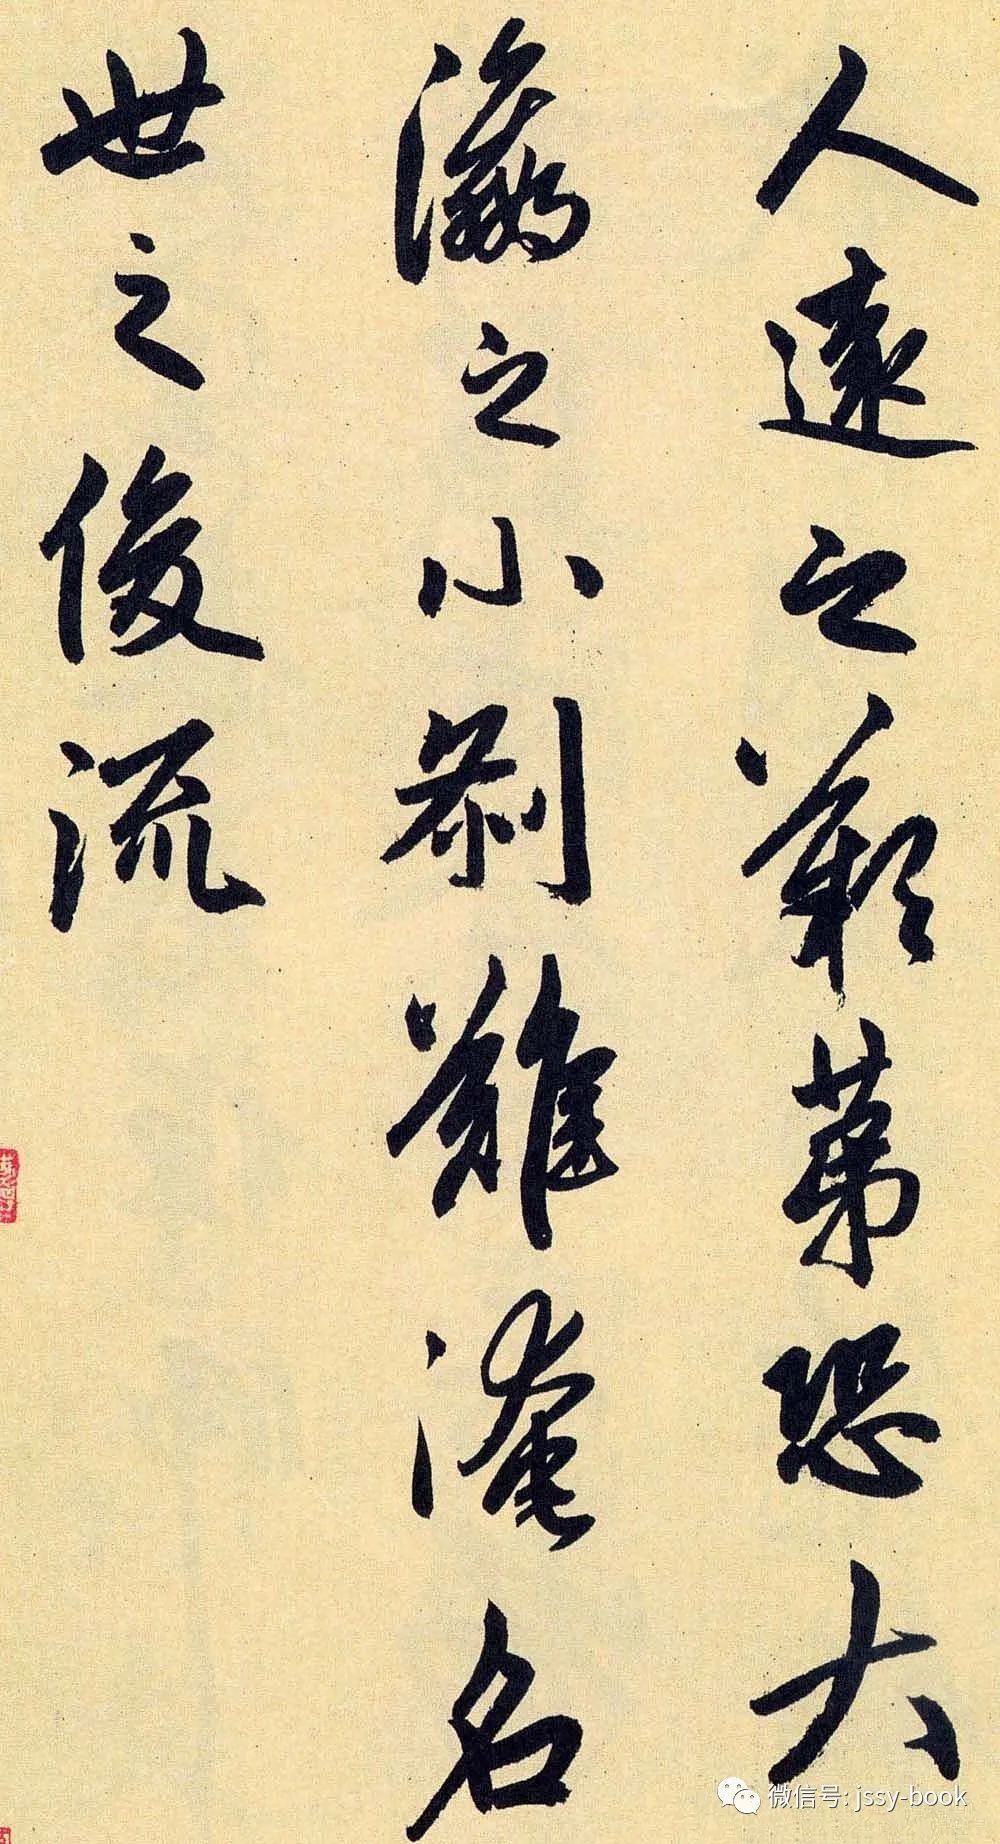 人遠之歎苐恐大
瀛之小刹難淹名
世之俊流
微信号: jssy-book